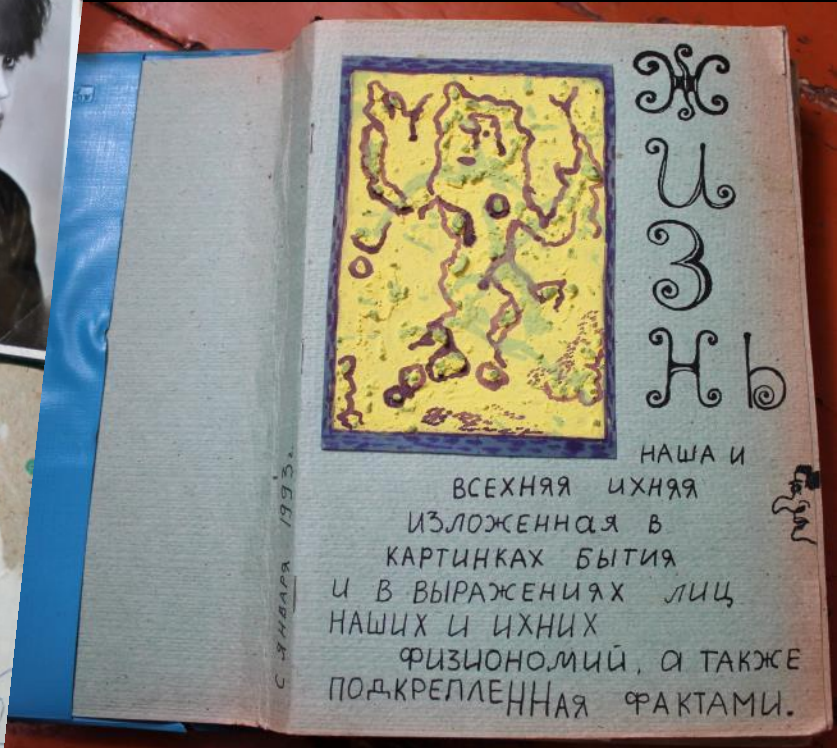 ЖИЗНЬ
НАША И
ВСЕХНЯЯ ИХНЯЯ
ИЗЛОЖЕННАЯ В
КАРТИНКАХ БЫТИЯ
И В ВЫРАЖЕНИЯХ ЛИЦ
НАШИХ И ИХНИХ
ФИЗИОНОМИЙ, А ТАКЖЕ
ПОДКРЕПЛЕННАЯ ФАКТАМИ.
С ЯНВАРЯ 1993 г.